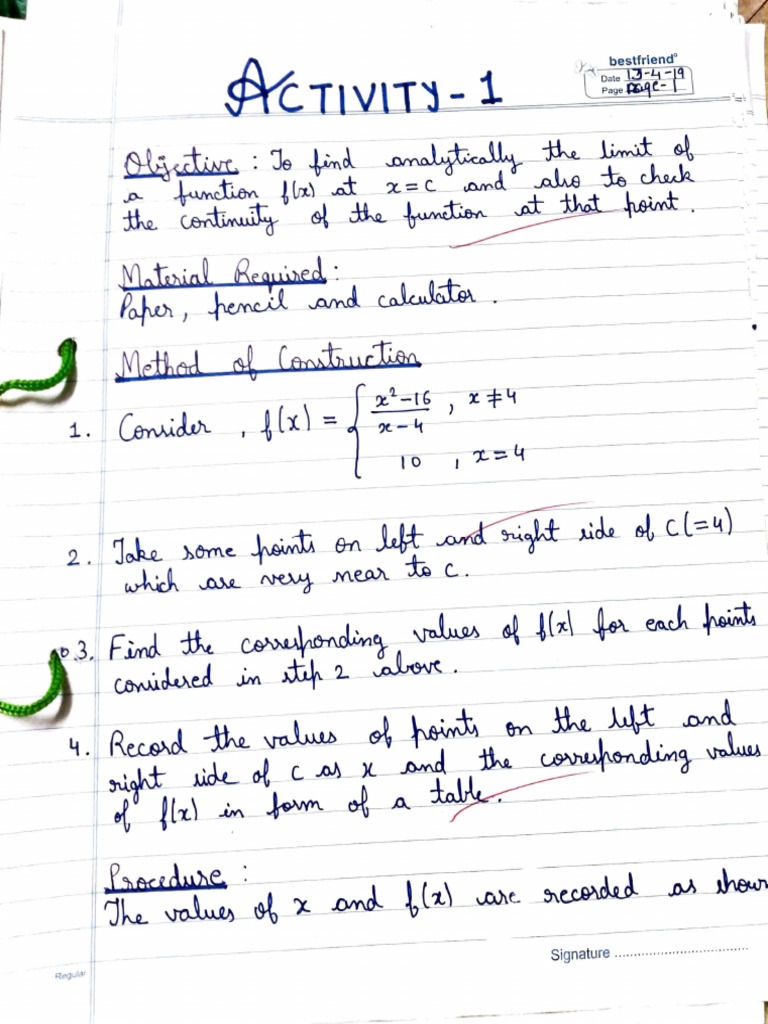 bestfriend
Date 13-4-19
Page Page-1
ACTIVITY-1
Objective : To find analytically the limit of
a function f(x) at x=c and also to check
the continuity of the function at that point.
Material Required :
Paper, pencil and calculator.
Method of Construction
1. Consider , f(x) = { x²-16 / x-4 , x≠4
10 , x=4
2. Take some points on left and right side of C(=4)
which are very near to c.
3. Find the corresponding values of f(x) for each points
considered in step 2 above.
4. Record the values of points on the left and
right side of c as x and the corresponding values
of f(x) in form of a table.
Procedure :
The values of x and f(x) are recorded as show
Signature
Regular